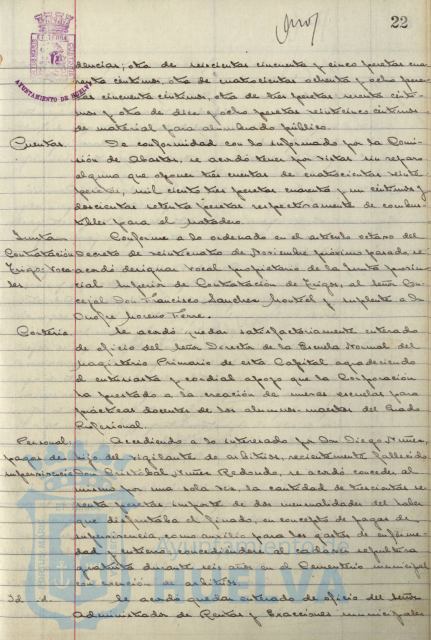 22
AYUNTAMIENTO DE HUELVA
dencias; otra de seiscientas cincuenta y cinco pesetas cua-
renta céntimos, otra de cuatrocientas ochenta y ocho pese-
tas cincuenta céntimos, otra de tres pesetas sesenta cénti-
mos y otra de diez y ocho pesetas veinticinco céntimos
de material para alumbrado público.
Cuentas. De conformidad con lo informado por la Comi-
sión de Abastos, se acordó tener por vistas sin reparo
alguno que oponer tres cuentas de cuatrocientas veinte
pesetas, mil ciento tres pesetas cuarenta y un céntimos y
doscientas setenta pesetas respectivamente de combus-
tibles para el Matadero.
Junta Conforme a lo ordenado en el artículo octavo del
Contratación Decreto de veinticuatro de Noviembre próximo pasado, se
Trigos Voca- acordó designar vocal propietario de la Junta provin-
les cial Superior de Contratación de Trigos, al Señor Con-
cejal Don Francisco Sánchez Montiel y suplente a Don
Onofre Moreno Ferre.
Cortesía. Se acordó quedar satisfactoriamente enterado
de oficio del Señor Director de la Escuela Normal del
Magisterio Primario de esta Capital agradeciendo
el entusiasta y cordial apoyo que la Corporación
ha prestado a la creación de nuevas escuelas para
prácticas docentes de los alumnos-maestros del Grado
Profesional.
Personal. Accediendo a lo interesado por Don Diego Núñez,
pagas de hijo del vigilante de arbitrios, recientemente fallecido
supervivencia Don Cristóbal Núñez Redondo, se acordó conceder al
mismo por una sola vez, la cantidad de trescientas se-
senta pesetas importe de dos mensualidades del haber
que disfrutaba el finado, en concepto de pagas de
supervivencia, como auxilio para los gastos de enferme-
dad y entierro, concediéndose al cadáver sepultura
gratuita durante seis años en el Cementerio municipal
con exención de arbitrios.
Id. id. Se acordó quedar enterado de oficio del Señor
Administrador de Rentas y Exacciones municipales
Ayuntamiento de
HUELVA